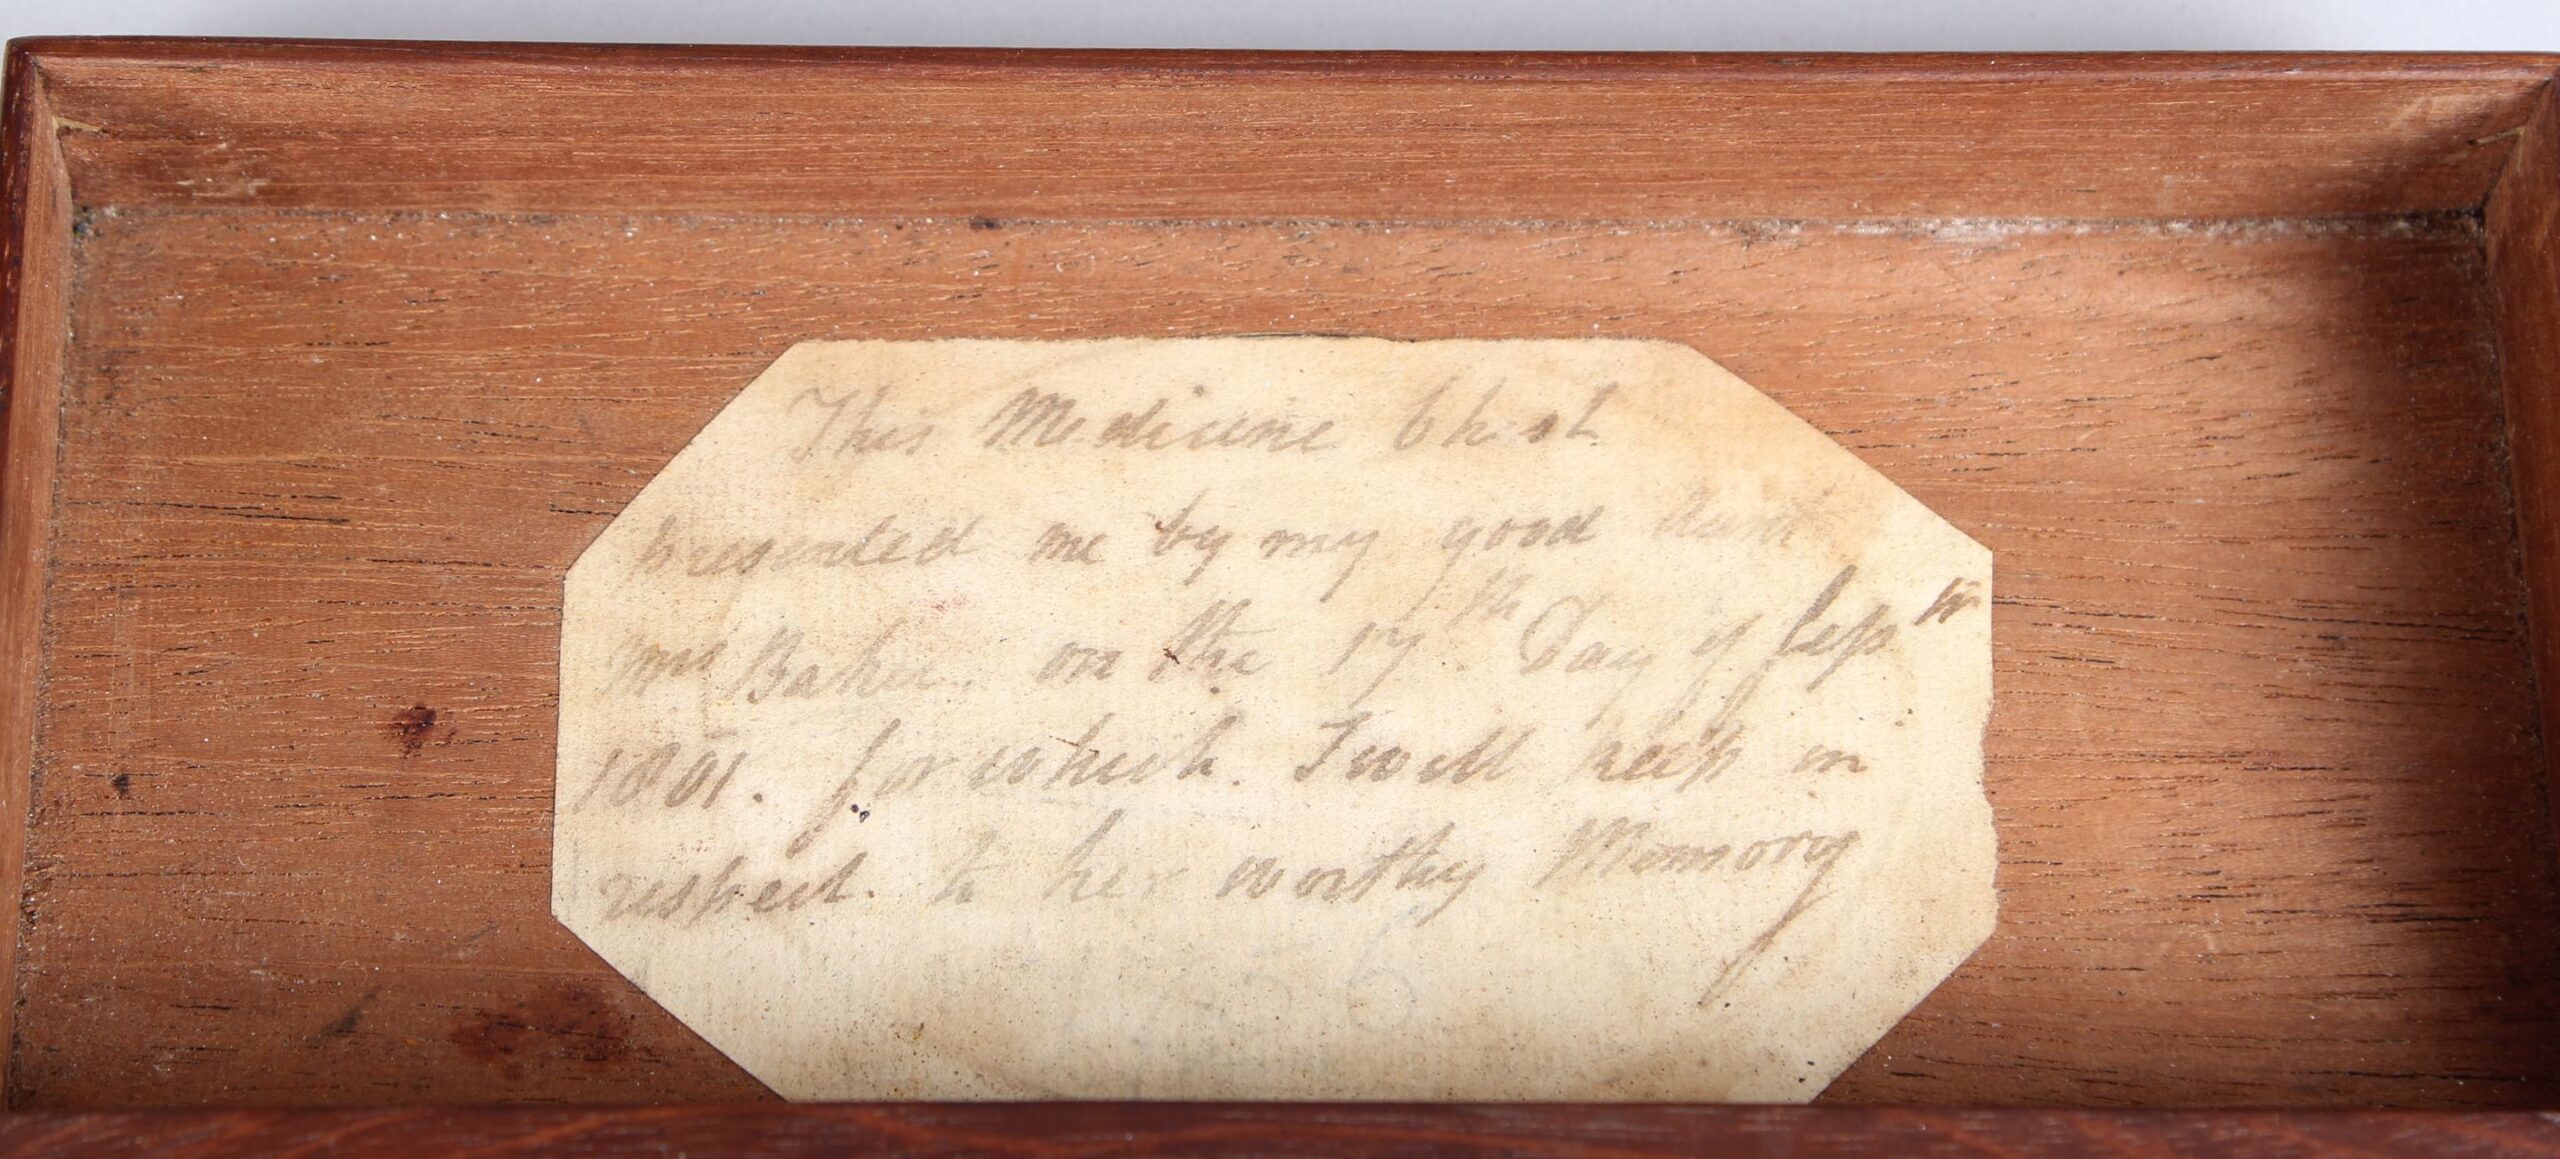 This Medicine Chest
presented me by my good Aunt
Mrs Baker. on the 17th Day of Septr
1801. for which. I will keep in
respect. to her worthy Memory